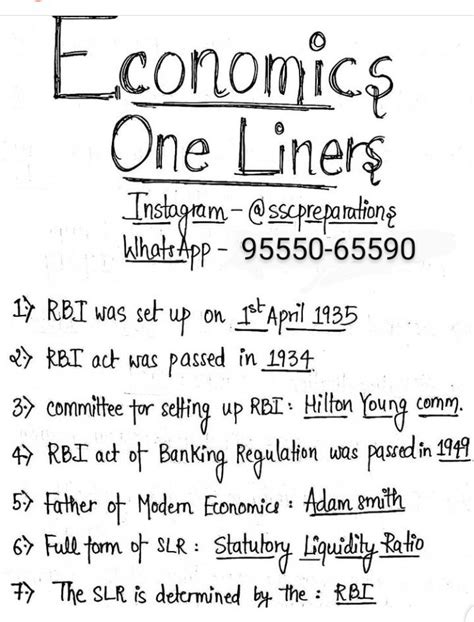 Economics
One Liners
Instagram - @sscpreparations
WhatsApp - 95550-65590
1) RBI was set up on 1st April 1935
2) RBI act was passed in 1934
3) committee for setting up RBI : Hilton Young comm.
4) RBI act of Banking Regulation was passed in 1949
5) Father of Modern Economics : Adam smith
6) Full form of SLR : Statutory Liquidity Ratio
7) The SLR is determined by the : RBI